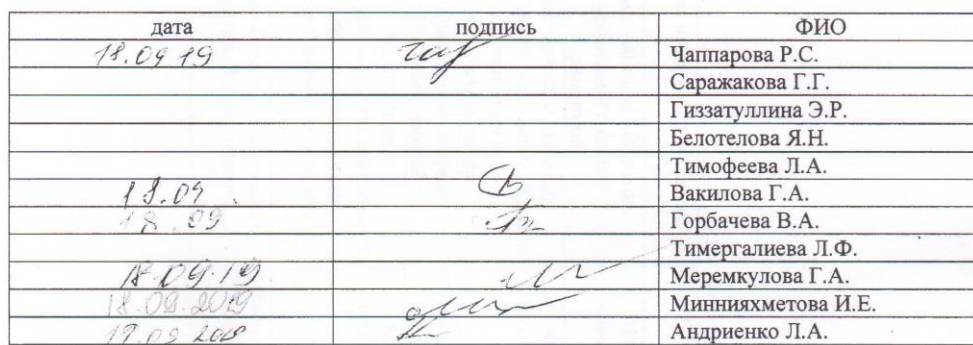 дата подпись ФИО
18.09 19 Чаппарова Р.С.
Саражакова Г.Г.
Гиззатуллина Э.Р.
Белотелова Я.Н.
Тимофеева Л.А.
18.09 Вакилова Г.А.
18.09 Горбачева В.А.
Тимергалиева Л.Ф.
18.09.19 Меремкулова Г.А.
18.09.2019 Миннияхметова И.Е.
Андриенко Л.А.